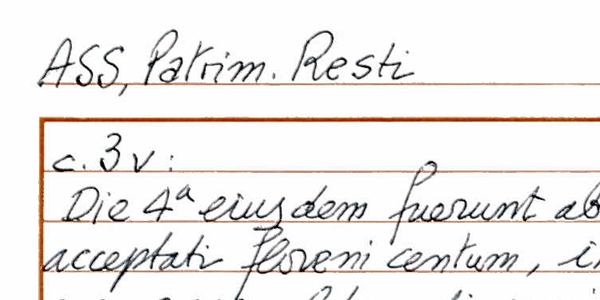 ASS, Patrim. Resti
c. 3v:
Die 4ª eiusdem fuerunt ab
acceptati floreni centum, i